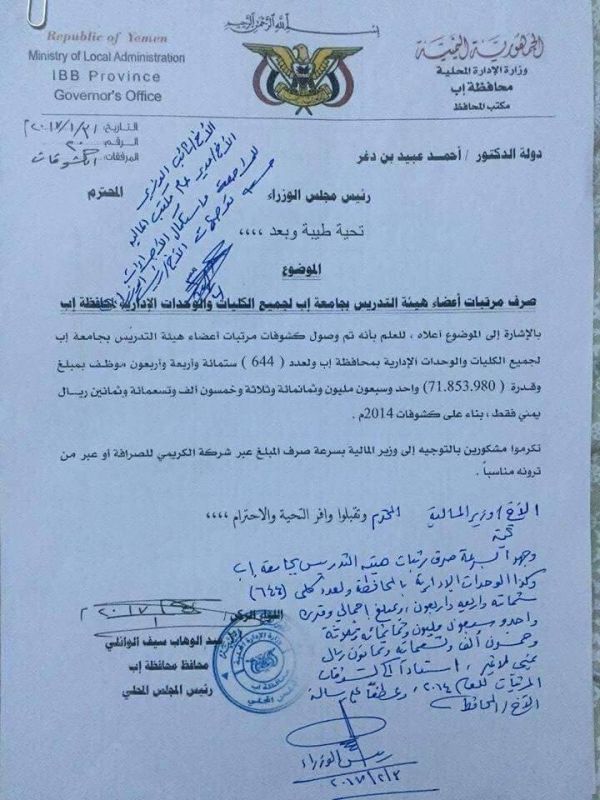 بسم الله الرحمن الرحيم
Republic of Yemen
Ministry of Local Administration
IBB Province
Governor's Office
الجمهورية اليمنية
وزارة الإدارة المحلية
محافظة إب
مكتب المحافظ
التاريخ: ٢٠١٧/١/٣١م
الرقم: ٢٠
المرفقات: الكشوفات
دولة الدكتور / أحمد عبيد بن دغر
رئيس مجلس الوزراء المحترم
تحية طيبة وبعد ,,,,
الموضوع
صرف مرتبات أعضاء هيئة التدريس بجامعة إب لجميع الكليات والوحدات الإدارية بمحافظة إب
بالإشارة إلى الموضوع أعلاه ، للعلم بأنه تم وصول كشوفات مرتبات أعضاء هيئة التدريس بجامعة إب
لجميع الكليات والوحدات الإدارية بمحافظة إب ولعدد ( 644 ) ستمائة وأربعة وأربعون موظف بمبلغ
وقدرة ( 71.853.980) واحد وسبعون مليون وثمانمائة وثلاثة وخمسون ألف وتسعمائة وثمانين ريال
يمني فقط ، بناء على كشوفات 2014م .
تكرموا مشكورين بالتوجيه إلى وزير المالية بسرعة صرف المبلغ عبر شركة الكريمي للصرافة أو عبر من
ترونه مناسباً .
وتقبلوا وافر التحية والاحترام ,,,,
الأخ / وزير المالية المحترم
تحية
وجهوا بسرعة صرف مرتبات هيئة التدريس بجامعة إب
وكذا الوحدات الإدارية بالمحافظة ولعدد كلي (٦٤٤)
ستمائة واربعة واربعون وبمبلغ إجمالي وقدره
واحد وسبعون مليون وثمانمائة وثلاثة
وخمسون ألف وتسعمائة وثمانون ريال
يمني لا غير ، استناداً الى كشوفات
المرتبات للعام ٢٠١٤، وعطفاً على رسالة
الأخ / المحافظ
رئيس الوزراء
٢٠١٧/٢/٢
اللواء الركن
عبد الوهاب سيف الوائلي
محافظ محافظة إب
رئيس المجلس المحلي